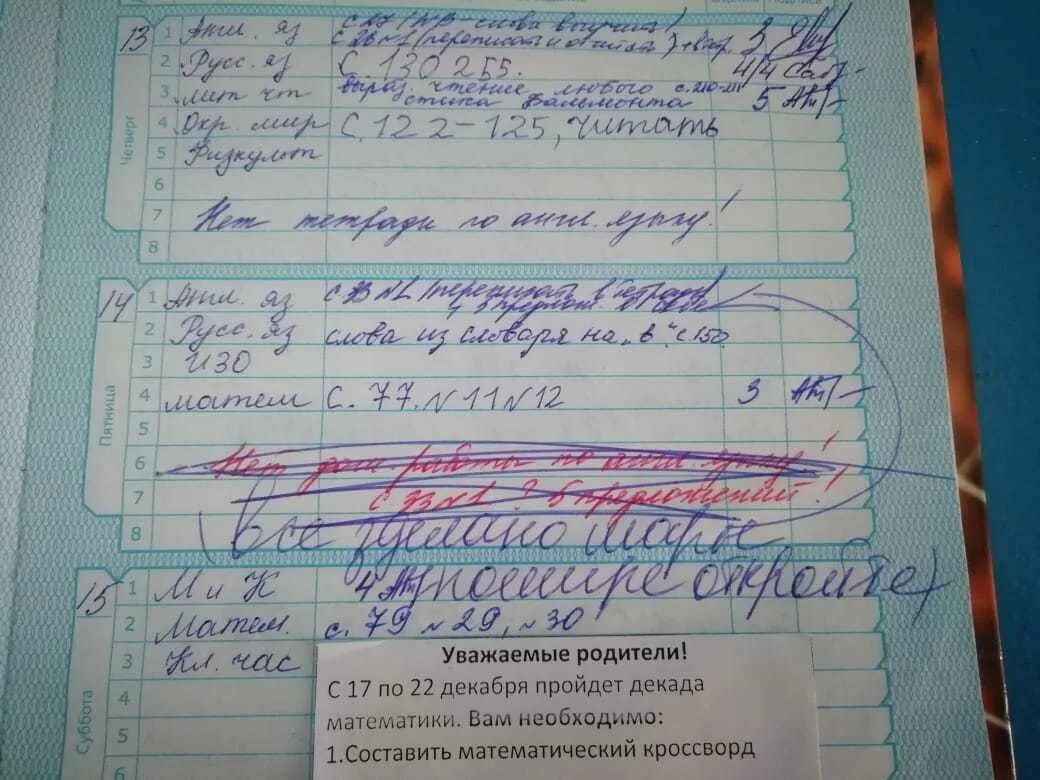 13 Четверг
1 Англ. яз с 27 №3 - слова выучить
с 26 №1 (переписать и 3
2 Русс. яз с. 130 255. 4/4
3 лит чт выраз. чтение любого с. 210-211
стиха Бальмонта 5
4 Окр. мир с. 122-125, читать
5 Физкульт
6
7 Нет тетради по англ. языку!
8
14 Пятница
1 Англ. яз с 33 №1 (переписать в тетрадь
2 Русс. яз слова из словаря на „в" с 150
3 ИЗО
4 матем с. 77. №11 №12 3
5
6 Нет дом работы по англ. языку!
7 с 33 №1 ? 6 предложений!
8 (Всё зделано шары
пошире откройте)
15 Суббота
1 М и К 4
2 Матем. с. 79 №29, №30
3 Кл. час
4
5
6
Уважаемые родители!
С 17 по 22 декабря пройдет декада
математики. Вам необходимо:
1.Составить математический кроссворд